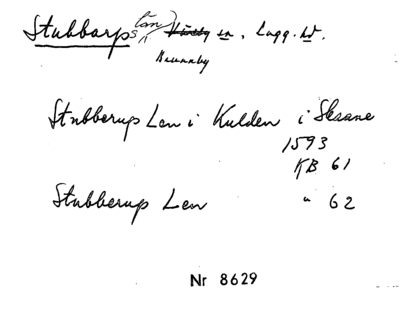 Stubbarpslän sn, Lugg. hd.
Brunnby
Stubberup Len i Kulden i Skaane
1593
KB 61
Stubberup Len " 62
Nr 8629